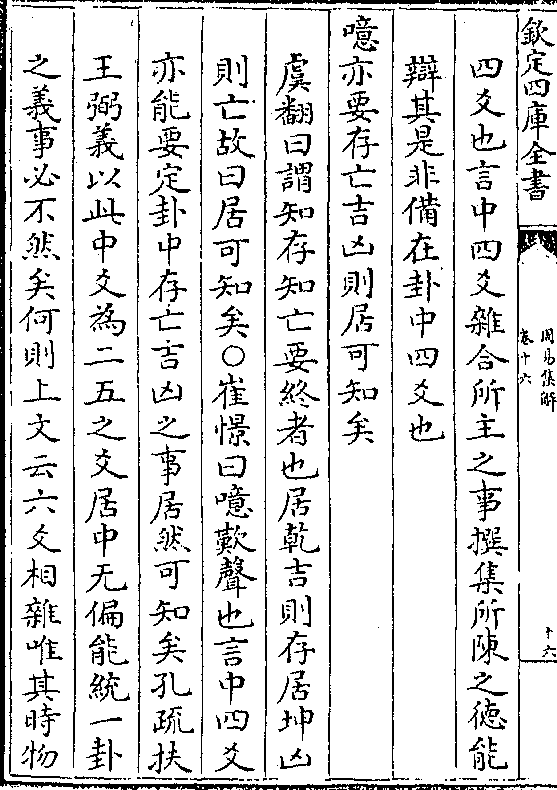 欽定四庫全書
周易集解
卷十六
十六
四爻也言中四爻雜合所主之事撰集所陳之德能
辯其是非備在卦中四爻也
噫亦要存亡吉凶則居可知矣
虞翻曰謂知存知亡要終者也居乾吉則存居坤凶
則亡故曰居可知矣○崔憬曰噫歎聲也言中四爻
亦能要定卦中存亡吉凶之事居然可知矣孔疏扶
王弼義以此中爻為二五之爻居中无偏能統一卦
之義事必不然矣何則上文云六爻相雜唯其時物